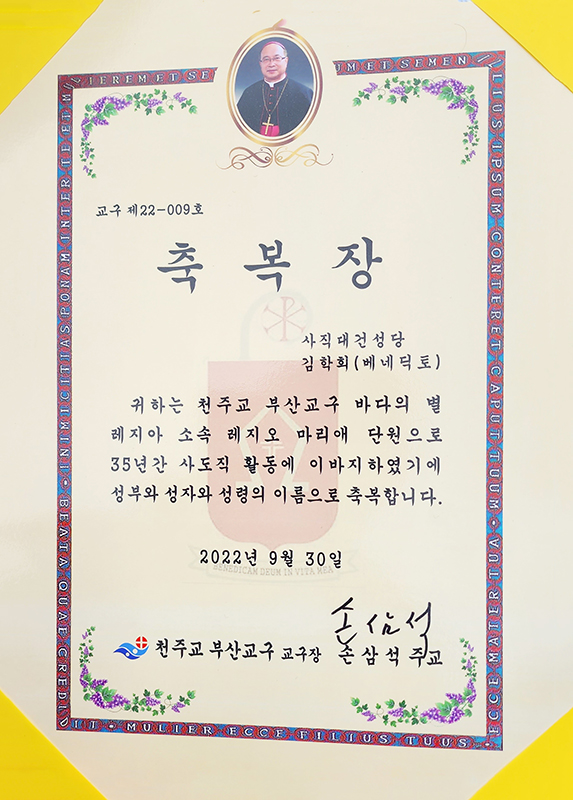 IEREM ET SE
UM ET SEMEN
ILLIUS IPSUM CONTERET CAPUT TUUM
ECCE MATER TUA
INIMICITIAS PONAM INTER TE ET MU
BEATA QUAE CREDID
IT MULIER ECCE FILIUS TUUS
교구 제22-009호
축 복 장
사직대건성당
김학회(베네딕토)
귀하는 천주교 부산교구 바다의 별
레지아 소속 레지오 마리애 단원으로
35년간 사도직 활동에 이바지하였기에
성부와 성자와 성령의 이름으로 축복합니다.
2022년 9월 30일
BENEDICAM DEUM IN VITA MEA
손삼석
천주교 부산교구 교구장 손삼석 주교